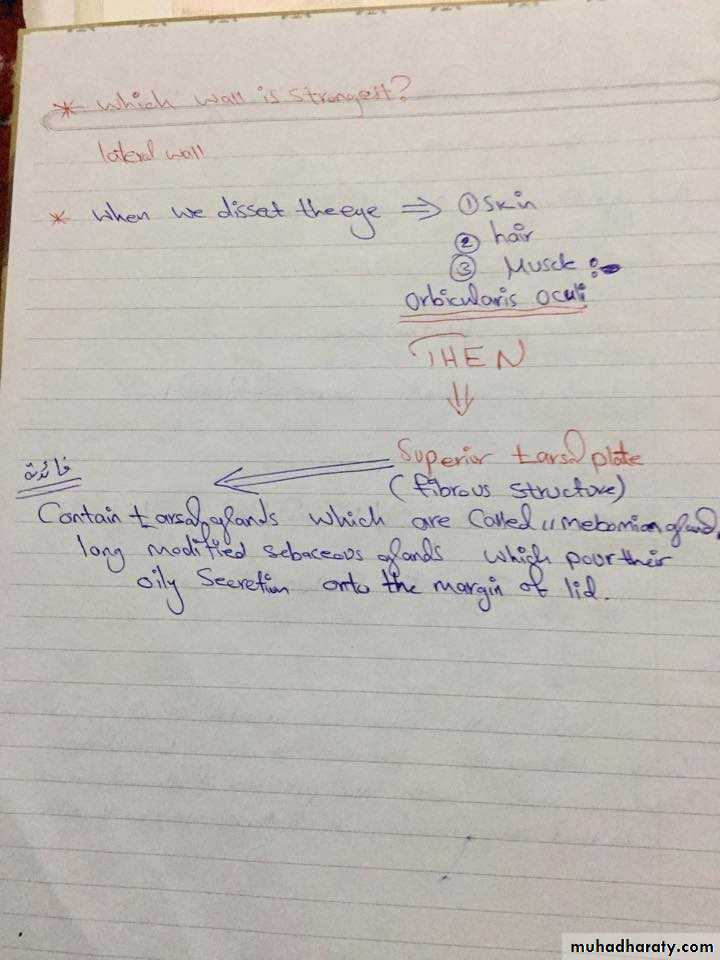 * which wall is strongest?
lateral wall
* when we disset the eye ⇒ ① skin
② hair
③ Muscle :-
orbicularis oculi
THEN
⇓
Superior tarsal plate
(fibrous structure)
فائدة
Contain tarsal glands which are called "mebomian gland,
long modified sebaceous glands which pour their
oily secretion onto the margin of lid.
muhadharaty.com